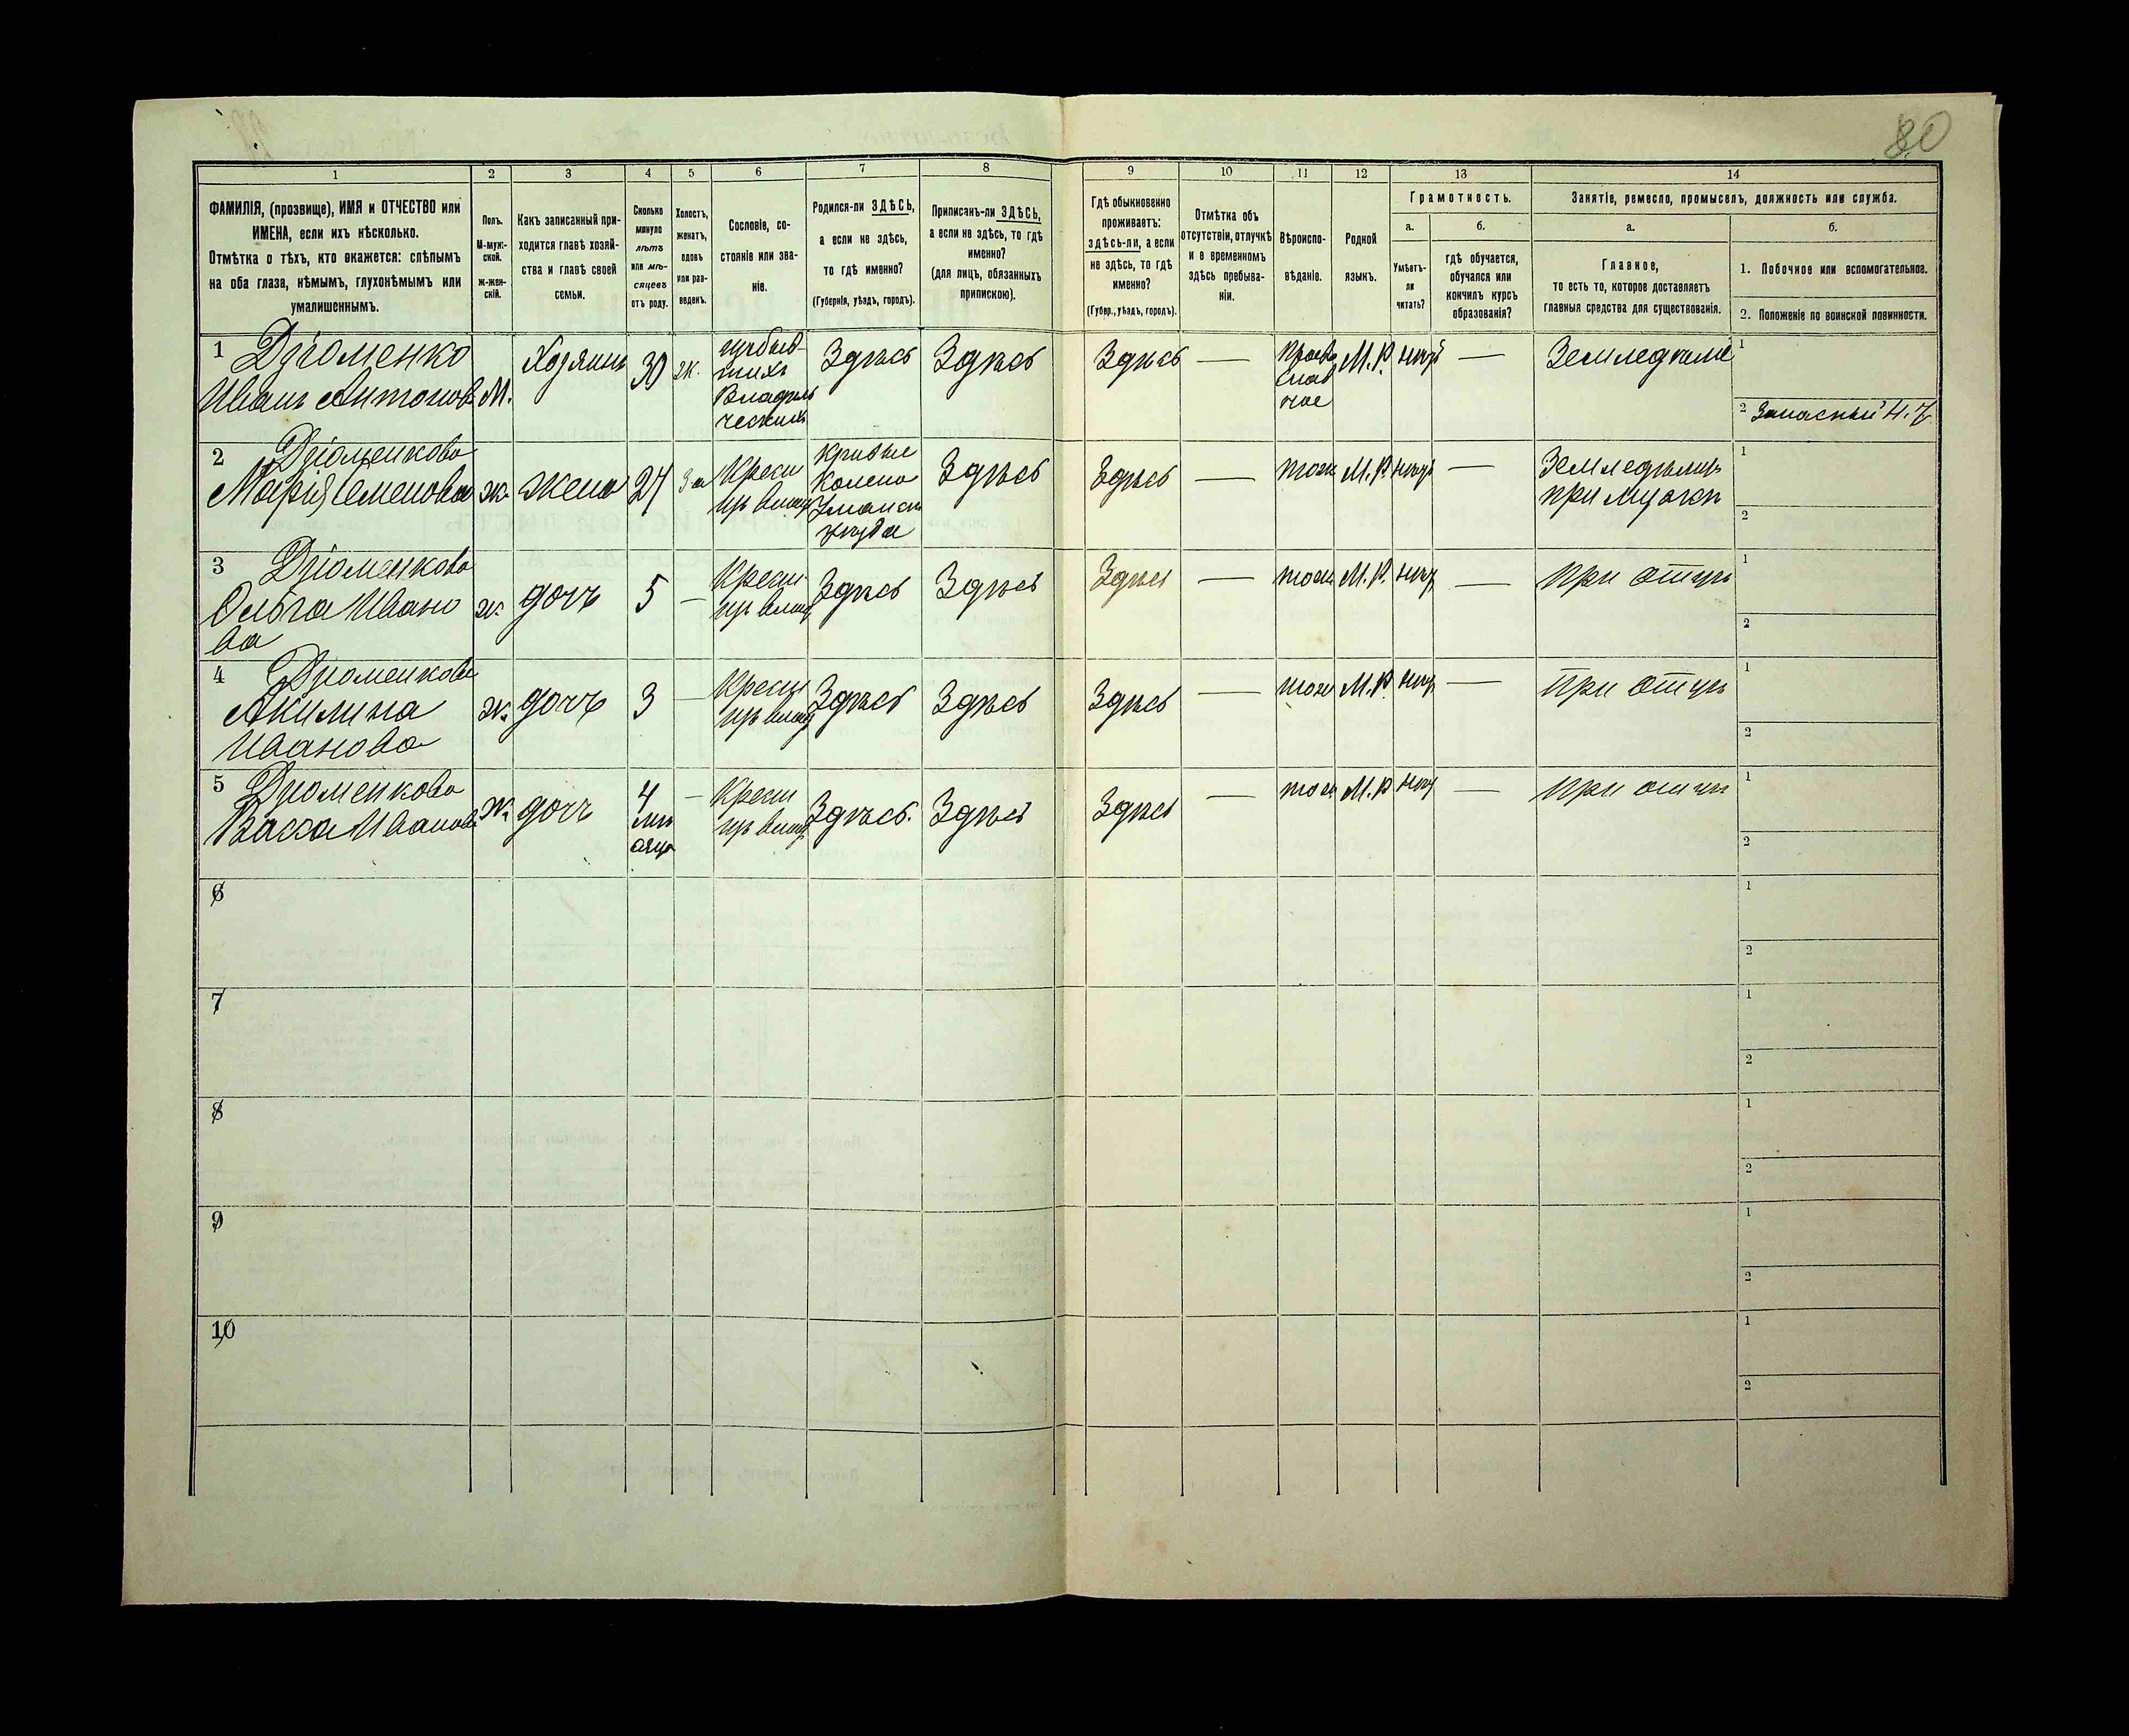 80
1
2
3
4
5
6
7
8
9
10
11
12
13
14
ФАМИЛІЯ, (прозвище), ИМЯ и ОТЧЕСТВО или
ИМЕНА, если ихъ нѣсколько.
Отмѣтка о тѣхъ, кто окажется: слѣпымъ
на оба глаза, нѣмымъ, глухонѣмымъ или
умалишеннымъ.
Полъ.
М-муж-
ской.
ж-жен-
скій.
Какъ записанный при-
ходится главѣ хозяй-
ства и главѣ своей
семьи.
Сколько
минуло
лѣтъ
или мѣ-
сяцевъ
отъ роду.
Холостъ,
женатъ,
вдовъ
или раз-
веденъ.
Сословіе, со-
стояніе или зва-
ніе.
Родился-ли ЗДѢСЬ,
а если не здѣсь,
то гдѣ именно?
(Губернія, уѣздъ, городъ).
Приписанъ-ли ЗДѢСЬ,
а если не здѣсь, то гдѣ
именно?
(для лицъ, обязанныхъ
припискою).
Гдѣ обыкновенно
проживаетъ:
здѣсь-ли, а если
не здѣсь, то гдѣ
именно?
(Губер., уѣздъ, городъ).
Отмѣтка объ
отсутствіи, отлучкѣ
и о временномъ
здѣсь пребыва-
ніи.
Вѣроиспо-
вѣданіе.
Родной
языкъ.
Грамотность.
а.
Умѣетъ-
ли
читать?
б.
гдѣ обучается,
обучался или
кончилъ курсъ
образованія?
Занятіе, ремесло, промыселъ, должность или служба.
а.
Главное,
то есть то, которое доставляетъ
главныя средства для существованія.
б.
1. Побочное или вспомогательное.
2. Положеніе по воинской повинности.
1
Иванъ Антоновъ
М.
Хозяинъ
30
ж.
Здѣсь
Здѣсь
Здѣсь
—
Право
слав
ное
М.Р.
—
1
2 Запасный
2
Марія Семенова
ж.
жена
27
За
Кресть
Кривые
Колена
Уманск
уѣзда
Здѣсь
Здѣсь
—
тоже
М.Р.
—
при мужѣ
1
2
3
Ольга Ивано
ва
ж.
дочь
5
—
Здѣсь
Здѣсь
Здѣсь
—
тоже
М.Р.
—
при отцѣ
1
2
4
Акилина
Иванова
ж.
дочь
3
—
Здѣсь
Здѣсь
Здѣсь
—
тоже
М.Р.
—
при отцѣ
1
2
5
Васса Иванова
ж.
дочь
4
мѣ
сяца
—
Здѣсь
Здѣсь
Здѣсь
—
тоже
М.Р.
—
при отцѣ
1
2
6
1
2
7
1
2
8
1
2
9
1
2
10
1
2